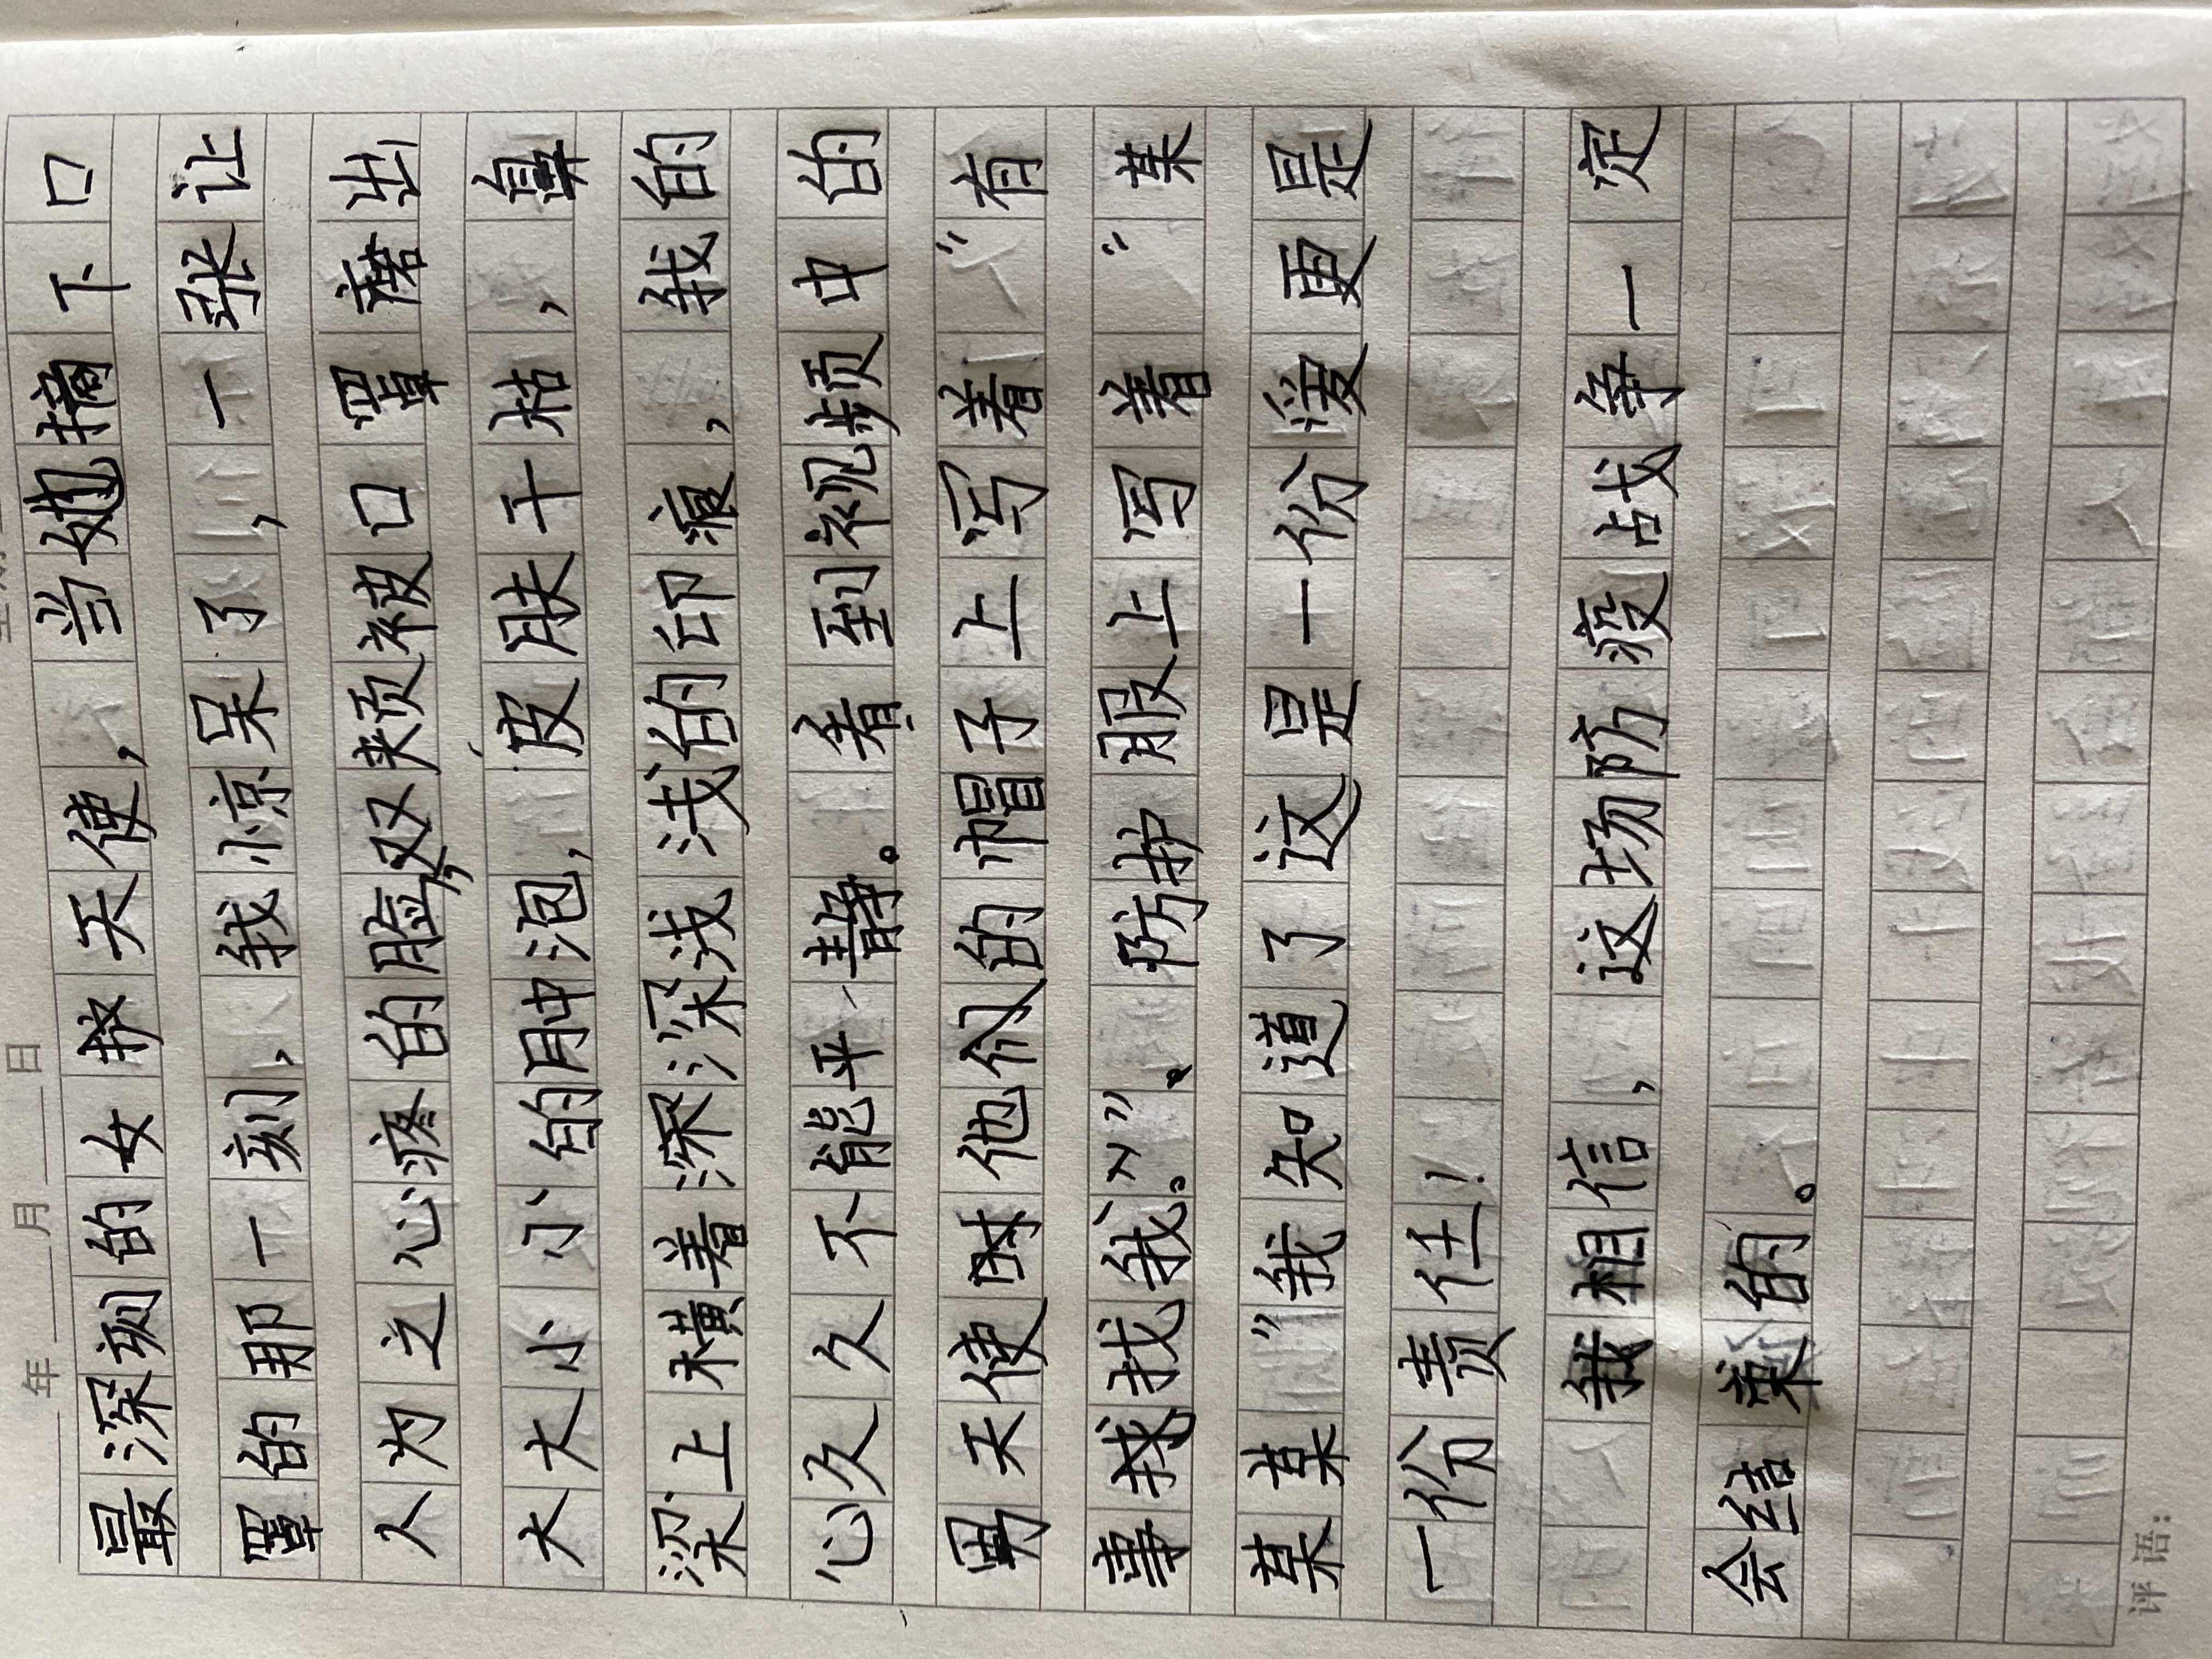 年 月 日
最深刻的女教天使，当她摘下口
罩的那一刻，我惊呆了，一张让
人为之心疼的脸，双夹颊被口罩磨出
大大小小的肿泡，皮肤干枯，鼻
梁上横着深深浅浅的印痕，我的
心久久不能平静。看到视频中的
男天使时他们的帽子上写着“有
事找找我。”、防护服上写着“某
某某”我知道了这是一份爱更是
一份责任！
我相信，这场防疫战争一定
会结束的。
评语：